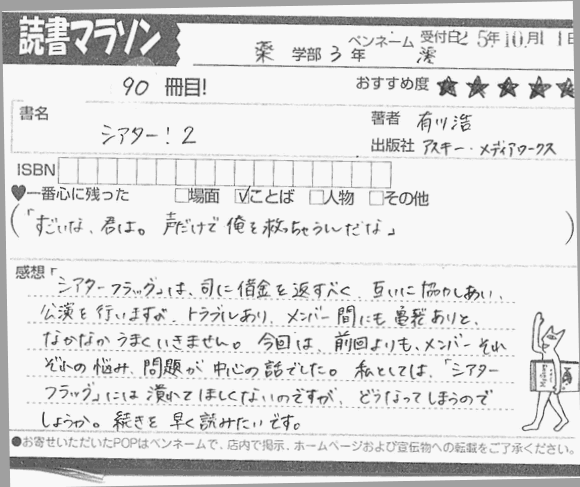 読書マラソン
薬 学部 3 年 ペンネーム 澪 受付日 25年10月11日
90 冊目! おすすめ度 ★★★★★
書名 著者 有川浩
シアター!2 出版社 アスキー・メディアワークス
ISBN
♥一番心に残った □場面 ☑ことば □人物 □その他
(「すごいな、君は。声だけで俺を救っちゃうんだな」)
感想「シアターフラッグ」は、司に借金を返すべく、互いに協力しあい、
公演を行いますが、トラブルあり、メンバー間にも亀裂ありと、
なかなかうまくいきません。今回は、前回よりも、メンバーそれ
ぞれの悩み、問題が中心の話でした。私としては、「シアター
フラッグ」には潰れてほしくないのですが、どうなってしまうので
しょうか。続きを早く読みたいです。
●お寄せいただいたPOPはペンネームで、店内で掲示、ホームページおよび宣伝物への転載をご了承ください。